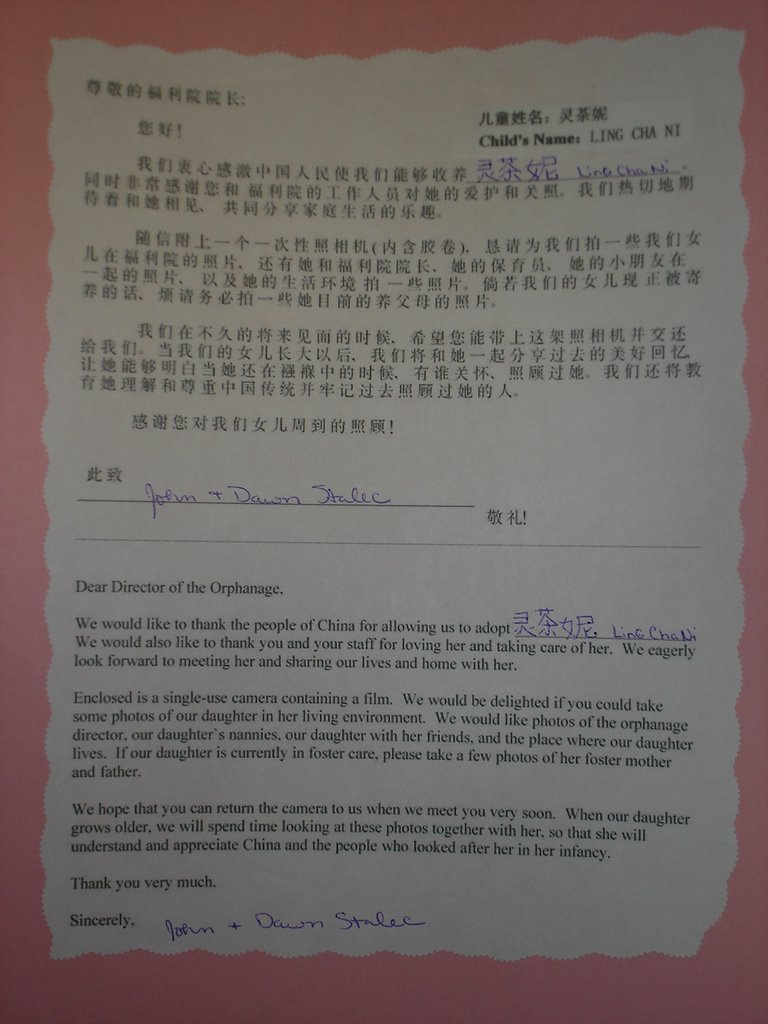 尊敬的福利院院长:
儿童姓名: 灵茶妮
您好!
Child's Name: LING CHA NI
我们衷心感激中国人民使我们能够收养 灵茶妮 Ling Cha Ni.
同时非常感谢您和福利院的工作人员对她的爱护和关照。我们热切地期
待着和她相见、共同分享家庭生活的乐趣。
随信附上一个一次性照相机(内含胶卷)、恳请为我们拍一些我们女
儿在福利院的照片、还有她和福利院院长、她的保育员、她的小朋友在
一起的照片、以及她的生活环境拍一些照片。倘若我们的女儿现正被寄
养的话、烦请务必拍一些她目前的养父母的照片。
我们在不久的将来见面的时候、希望您能带上这架照相机并交还
给我们。当我们的女儿长大以后、我们将和她一起分享过去的美好回忆、
让她能够明白当她还在襁褓中的时候、有谁关怀、照顾过她。我们还将教
育她理解和尊重中国传统并牢记过去照顾过她的人。
感谢您对我们女儿周到的照顾!
此致
John + Dawn Stalec
敬礼!
Dear Director of the Orphanage,
We would like to thank the people of China for allowing us to adopt 灵茶妮. Ling Cha Ni
We would also like to thank you and your staff for loving her and taking care of her. We eagerly
look forward to meeting her and sharing our lives and home with her.
Enclosed is a single-use camera containing a film. We would be delighted if you could take
some photos of our daughter in her living environment. We would like photos of the orphanage
director, our daughter's nannies, our daughter with her friends, and the place where our daughter
lives. If our daughter is currently in foster care, please take a few photos of her foster mother
and father.
We hope that you can return the camera to us when we meet you very soon. When our daughter
grows older, we will spend time looking at these photos together with her, so that she will
understand and appreciate China and the people who looked after her in her infancy.
Thank you very much.
Sincerely, John + Dawn Stalec